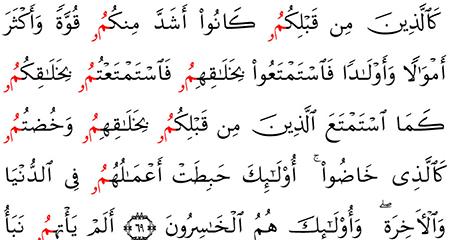 كَٱلَّذِينَ مِن قَبْلِكُمُۥ كَانُوٓا۟ أَشَدَّ مِنكُمُۥ قُوَّةً وَأَكْثَرَ
أَمْوَٰلًا وَأَوْلَٰدًا فَٱسْتَمْتَعُوا۟ بِخَلَٰقِهِمُۥ فَٱسْتَمْتَعْتُمُۥ بِخَلَٰقِكُمُۥ
كَمَا ٱسْتَمْتَعَ ٱلَّذِينَ مِن قَبْلِكُمُۥ بِخَلَٰقِهِمُۥ وَخُضْتُمُۥ
كَٱلَّذِى خَاضُوٓا۟ ۚ أُو۟لَٰٓئِكَ حَبِطَتْ أَعْمَٰلُهُمُۥ فِى ٱلدُّنْيَا
وَٱلْأَخِرَةِ ۖ وَأُو۟لَٰٓئِكَ هُمُ ٱلْخَٰسِرُونَ ۝٦٩ أَلَمْ يَأْتِهِمُۥ نَبَأُ